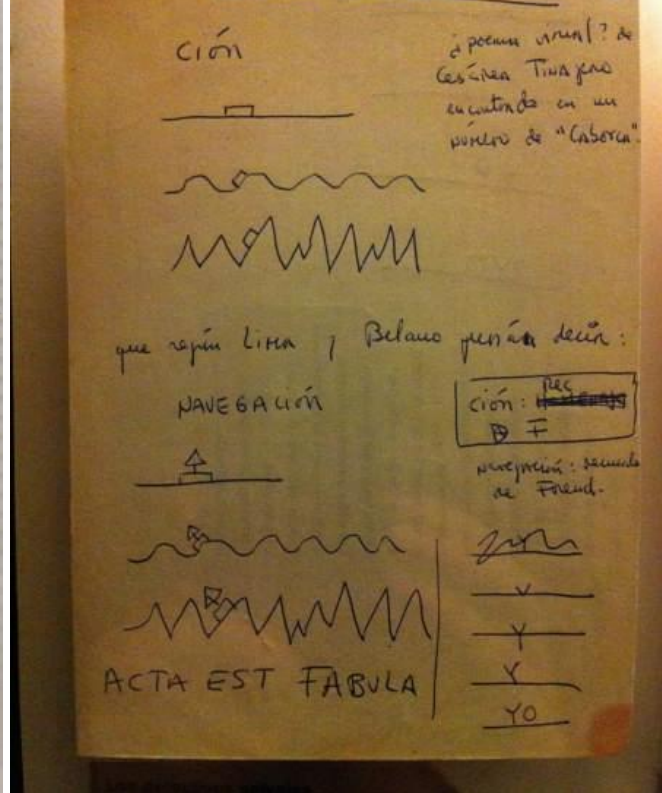 Ción
¿poema visual? de
Cesárea Tinajero
encontrado en un
número de "Caborca".
que según Lima y Belano quería decir:
NAVEGACIÓN
Ción: Rec
F
navegación: recuerdo
de Freud.
V
Y
Y
YO
ACTA EST FABULA